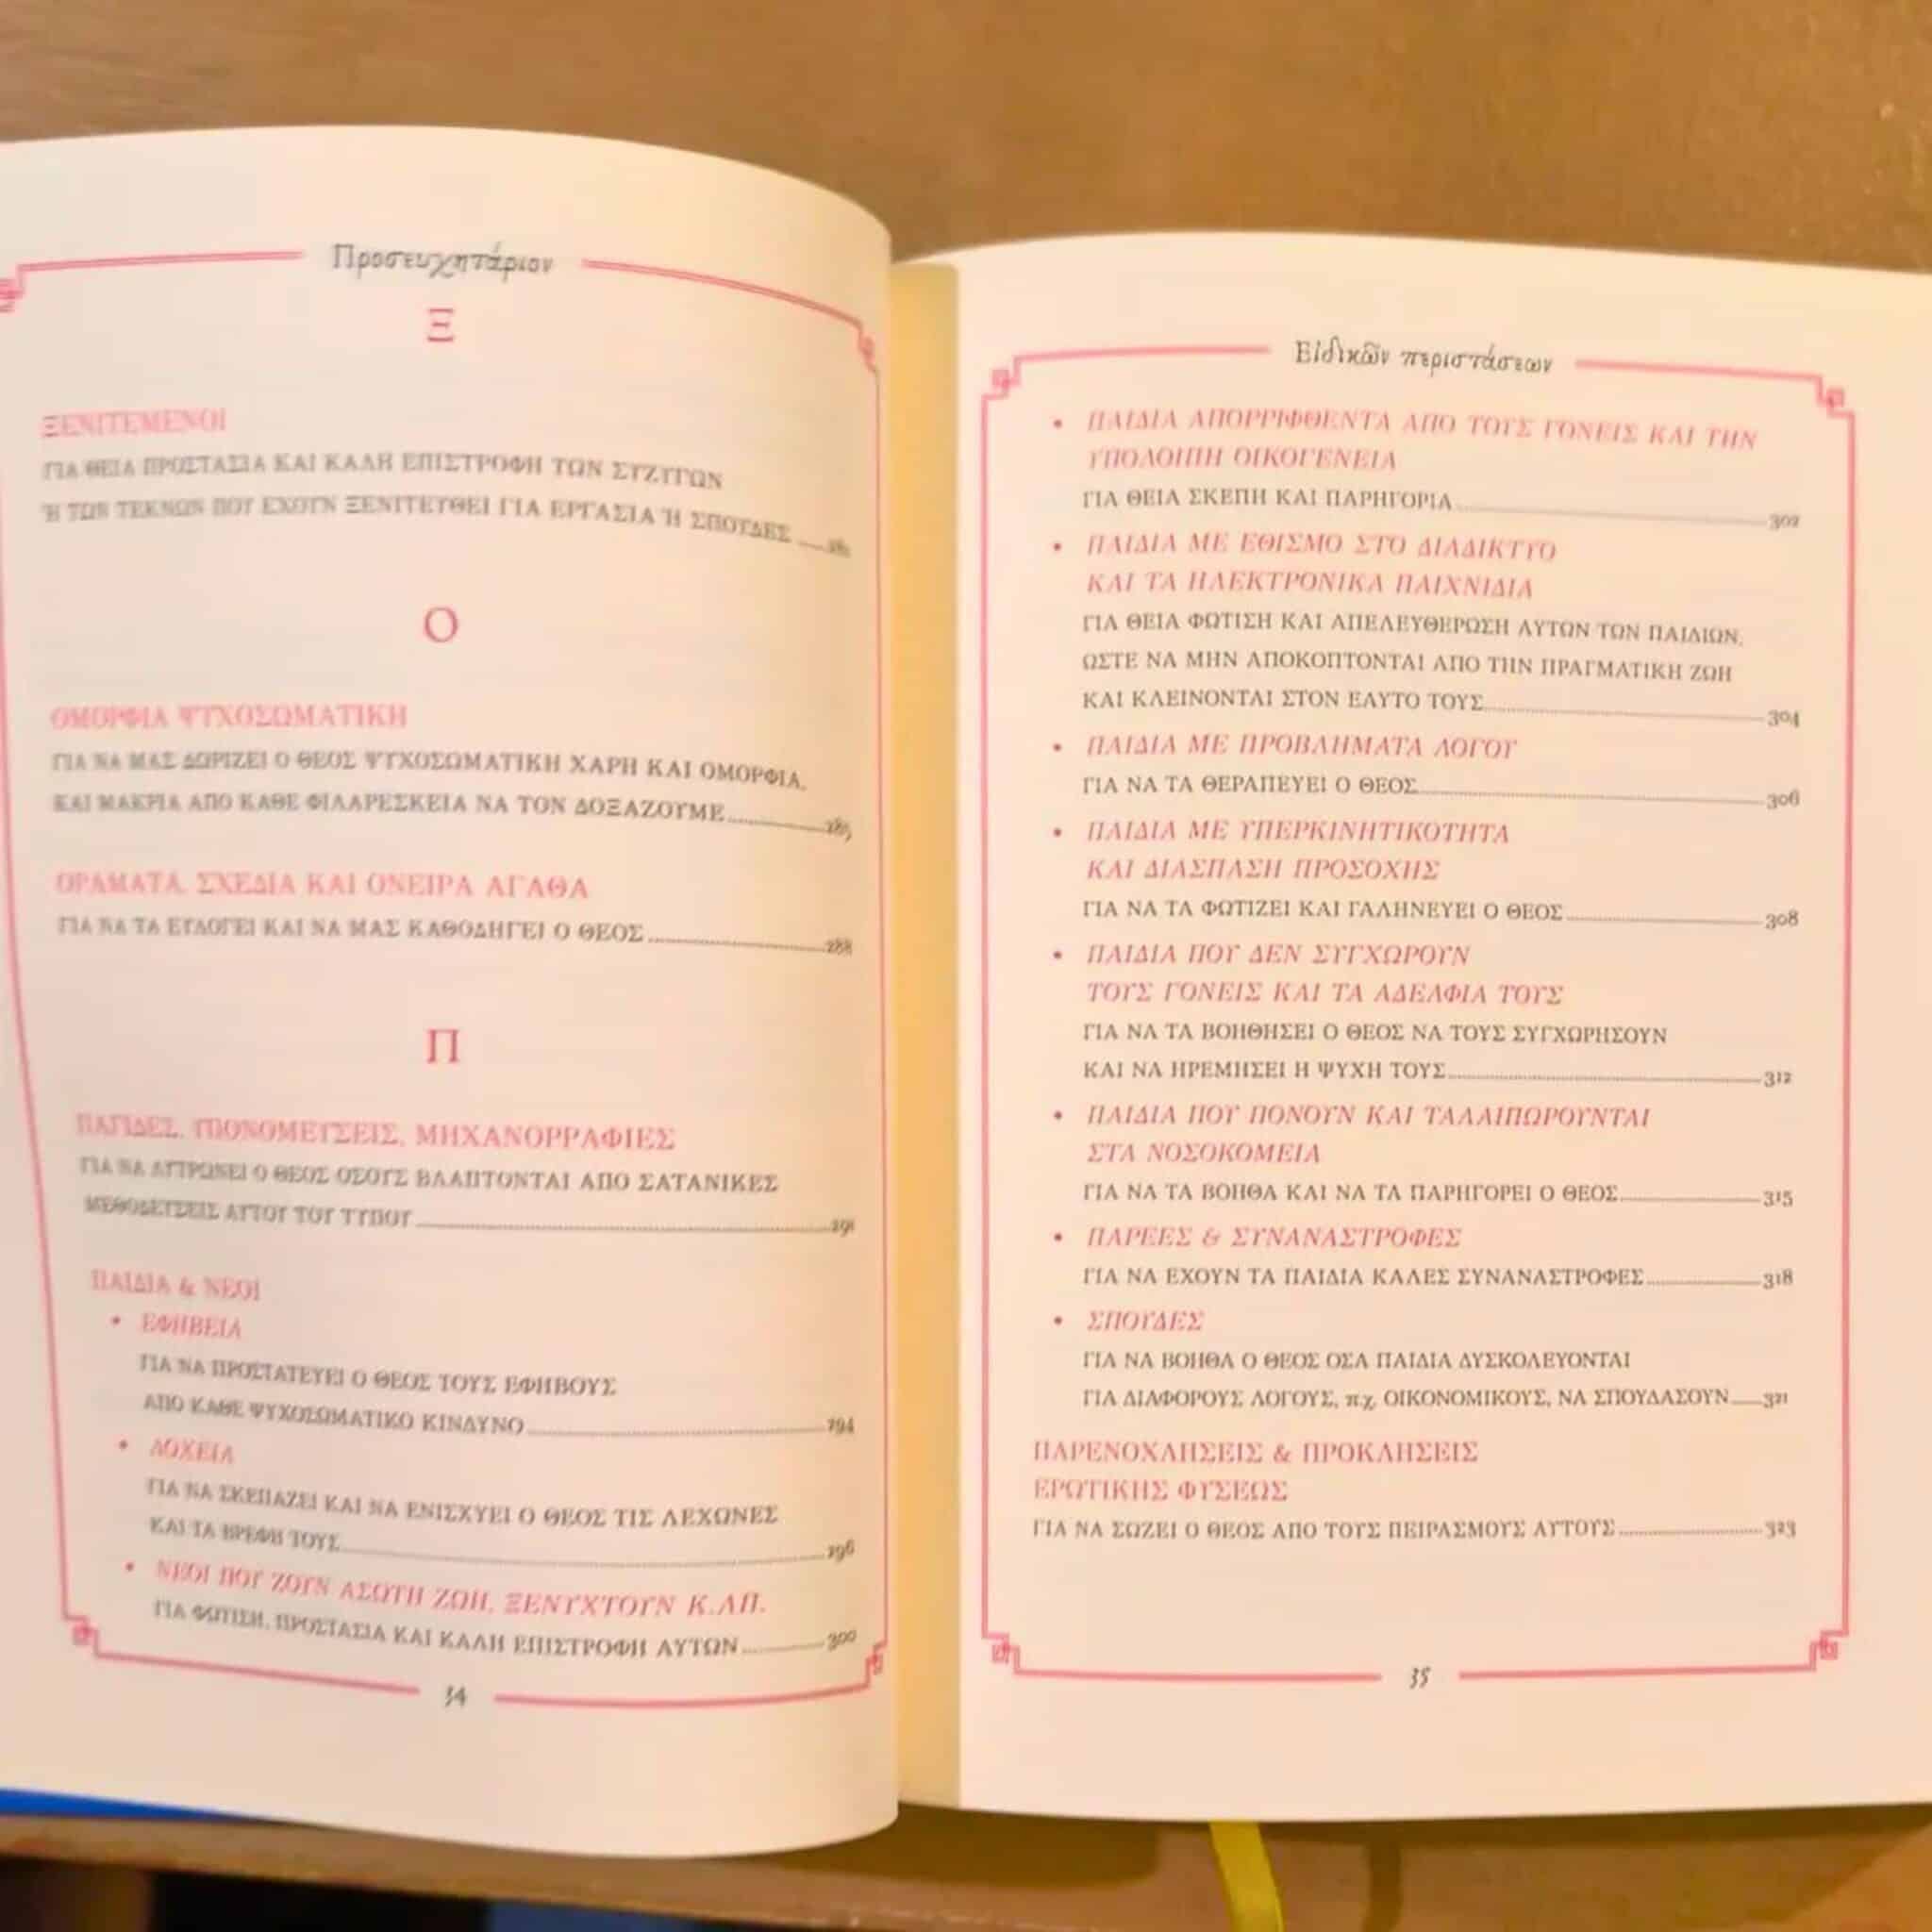 Προσευχητάριον
Ξ
ΞΕΝΙΤΕΜΕΝΟΙ
ΓΙΑ ΘΕΙΑ ΠΡΟΣΤΑΣΙΑ ΚΑΙ ΚΑΛΗ ΕΠΙΣΤΡΟΦΗ ΤΩΝ ΣΥΖΥΓΩΝ
Ή ΤΩΝ ΤΕΚΝΩΝ ΠΟΥ ΕΧΟΥΝ ΞΕΝΙΤΕΥΘΕΙ ΓΙΑ ΕΡΓΑΣΙΑ Ή ΣΠΟΥΔΕΣ
Ο
ΟΜΟΡΦΙΑ ΨΥΧΟΣΩΜΑΤΙΚΗ
ΓΙΑ ΝΑ ΜΑΣ ΔΩΡΙΖΕΙ Ο ΘΕΟΣ ΨΥΧΟΣΩΜΑΤΙΚΗ ΧΑΡΗ ΚΑΙ ΟΜΟΡΦΙΑ,
ΚΑΙ ΜΑΚΡΙΑ ΑΠΟ ΚΑΘΕ ΦΙΛΑΡΕΣΚΕΙΑ ΝΑ ΤΟΝ ΔΟΞΑΖΟΥΜΕ 285
ΟΡΑΜΑΤΑ, ΣΧΕΔΙΑ ΚΑΙ ΟΝΕΙΡΑ ΑΓΑΘΑ
ΓΙΑ ΝΑ ΤΑ ΕΥΛΟΓΕΙ ΚΑΙ ΝΑ ΜΑΣ ΚΑΘΟΔΗΓΕΙ Ο ΘΕΟΣ 288
Π
ΠΑΓΙΔΕΣ, ΥΠΟΝΟΜΕΥΣΕΙΣ, ΜΗΧΑΝΟΡΡΑΦΙΕΣ
ΓΙΑ ΝΑ ΛΥΤΡΩΝΕΙ Ο ΘΕΟΣ ΟΣΟΥΣ ΒΛΑΠΤΟΝΤΑΙ ΑΠΟ ΣΑΤΑΝΙΚΕΣ
ΜΕΘΟΔΕΥΣΕΙΣ ΑΥΤΟΥ ΤΟΥ ΤΥΠΟΥ 291
ΠΑΙΔΙΑ & ΝΕΟΙ
• ΕΦΗΒΕΙΑ
ΓΙΑ ΝΑ ΠΡΟΣΤΑΤΕΥΕΙ Ο ΘΕΟΣ ΤΟΥΣ ΕΦΗΒΟΥΣ
ΑΠΟ ΚΑΘΕ ΨΥΧΟΣΩΜΑΤΙΚΟ ΚΙΝΔΥΝΟ 294
• ΛΟΧΕΙΑ
ΓΙΑ ΝΑ ΣΚΕΠΑΖΕΙ ΚΑΙ ΝΑ ΕΝΙΣΧΥΕΙ Ο ΘΕΟΣ ΤΙΣ ΛΕΧΩΝΕΣ
ΚΑΙ ΤΑ ΒΡΕΦΗ ΤΟΥΣ 296
• ΝΕΟΙ ΠΟΥ ΖΟΥΝ ΑΣΩΤΗ ΖΩΗ, ΞΕΝΥΧΤΟΥΝ Κ.ΛΠ.
ΓΙΑ ΦΩΤΙΣΗ, ΠΡΟΣΤΑΣΙΑ ΚΑΙ ΚΑΛΗ ΕΠΙΣΤΡΟΦΗ ΑΥΤΩΝ 300
34
Εἰδικῶν περιστάσεων
• ΠΑΙΔΙΑ ΑΠΟΡΡΙΦΘΕΝΤΑ ΑΠΟ ΤΟΥΣ ΓΟΝΕΙΣ ΚΑΙ ΤΗΝ
ΥΠΟΛΟΙΠΗ ΟΙΚΟΓΕΝΕΙΑ
ΓΙΑ ΘΕΙΑ ΣΚΕΠΗ ΚΑΙ ΠΑΡΗΓΟΡΙΑ 302
• ΠΑΙΔΙΑ ΜΕ ΕΘΙΣΜΟ ΣΤΟ ΔΙΑΔΙΚΤΥΟ
ΚΑΙ ΤΑ ΗΛΕΚΤΡΟΝΙΚΑ ΠΑΙΧΝΙΔΙΑ
ΓΙΑ ΘΕΙΑ ΦΩΤΙΣΗ ΚΑΙ ΑΠΕΛΕΥΘΕΡΩΣΗ ΑΥΤΩΝ ΤΩΝ ΠΑΙΔΙΩΝ,
ΩΣΤΕ ΝΑ ΜΗΝ ΑΠΟΚΟΠΤΟΝΤΑΙ ΑΠΟ ΤΗΝ ΠΡΑΓΜΑΤΙΚΗ ΖΩΗ
ΚΑΙ ΚΛΕΙΝΟΝΤΑΙ ΣΤΟΝ ΕΑΥΤΟ ΤΟΥΣ 304
• ΠΑΙΔΙΑ ΜΕ ΠΡΟΒΛΗΜΑΤΑ ΛΟΓΟΥ
ΓΙΑ ΝΑ ΤΑ ΘΕΡΑΠΕΥΕΙ Ο ΘΕΟΣ 306
• ΠΑΙΔΙΑ ΜΕ ΥΠΕΡΚΙΝΗΤΙΚΟΤΗΤΑ
ΚΑΙ ΔΙΑΣΠΑΣΗ ΠΡΟΣΟΧΗΣ
ΓΙΑ ΝΑ ΤΑ ΦΩΤΙΖΕΙ ΚΑΙ ΓΑΛΗΝΕΥΕΙ Ο ΘΕΟΣ 308
• ΠΑΙΔΙΑ ΠΟΥ ΔΕΝ ΣΥΓΧΩΡΟΥΝ
ΤΟΥΣ ΓΟΝΕΙΣ ΚΑΙ ΤΑ ΑΔΕΛΦΙΑ ΤΟΥΣ
ΓΙΑ ΝΑ ΤΑ ΒΟΗΘΗΣΕΙ Ο ΘΕΟΣ ΝΑ ΤΟΥΣ ΣΥΓΧΩΡΗΣΟΥΝ
ΚΑΙ ΝΑ ΗΡΕΜΗΣΕΙ Η ΨΥΧΗ ΤΟΥΣ 312
• ΠΑΙΔΙΑ ΠΟΥ ΠΟΝΟΥΝ ΚΑΙ ΤΑΛΑΙΠΩΡΟΥΝΤΑΙ
ΣΤΑ ΝΟΣΟΚΟΜΕΙΑ
ΓΙΑ ΝΑ ΤΑ ΒΟΗΘΑ ΚΑΙ ΝΑ ΤΑ ΠΑΡΗΓΟΡΕΙ Ο ΘΕΟΣ 315
• ΠΑΡΕΕΣ & ΣΥΝΑΝΑΣΤΡΟΦΕΣ
ΓΙΑ ΝΑ ΕΧΟΥΝ ΤΑ ΠΑΙΔΙΑ ΚΑΛΕΣ ΣΥΝΑΝΑΣΤΡΟΦΕΣ 318
• ΣΠΟΥΔΕΣ
ΓΙΑ ΝΑ ΒΟΗΘΑ Ο ΘΕΟΣ ΟΣΑ ΠΑΙΔΙΑ ΔΥΣΚΟΛΕΥΟΝΤΑΙ
ΓΙΑ ΔΙΑΦΟΡΟΥΣ ΛΟΓΟΥΣ, π.χ. ΟΙΚΟΝΟΜΙΚΟΥΣ, ΝΑ ΣΠΟΥΔΑΣΟΥΝ 321
ΠΑΡΕΝΟΧΛΗΣΕΙΣ & ΠΡΟΚΛΗΣΕΙΣ
ΕΡΩΤΙΚΗΣ ΦΥΣΕΩΣ
ΓΙΑ ΝΑ ΣΩΖΕΙ Ο ΘΕΟΣ ΑΠΟ ΤΟΥΣ ΠΕΙΡΑΣΜΟΥΣ ΑΥΤΟΥΣ 323
35